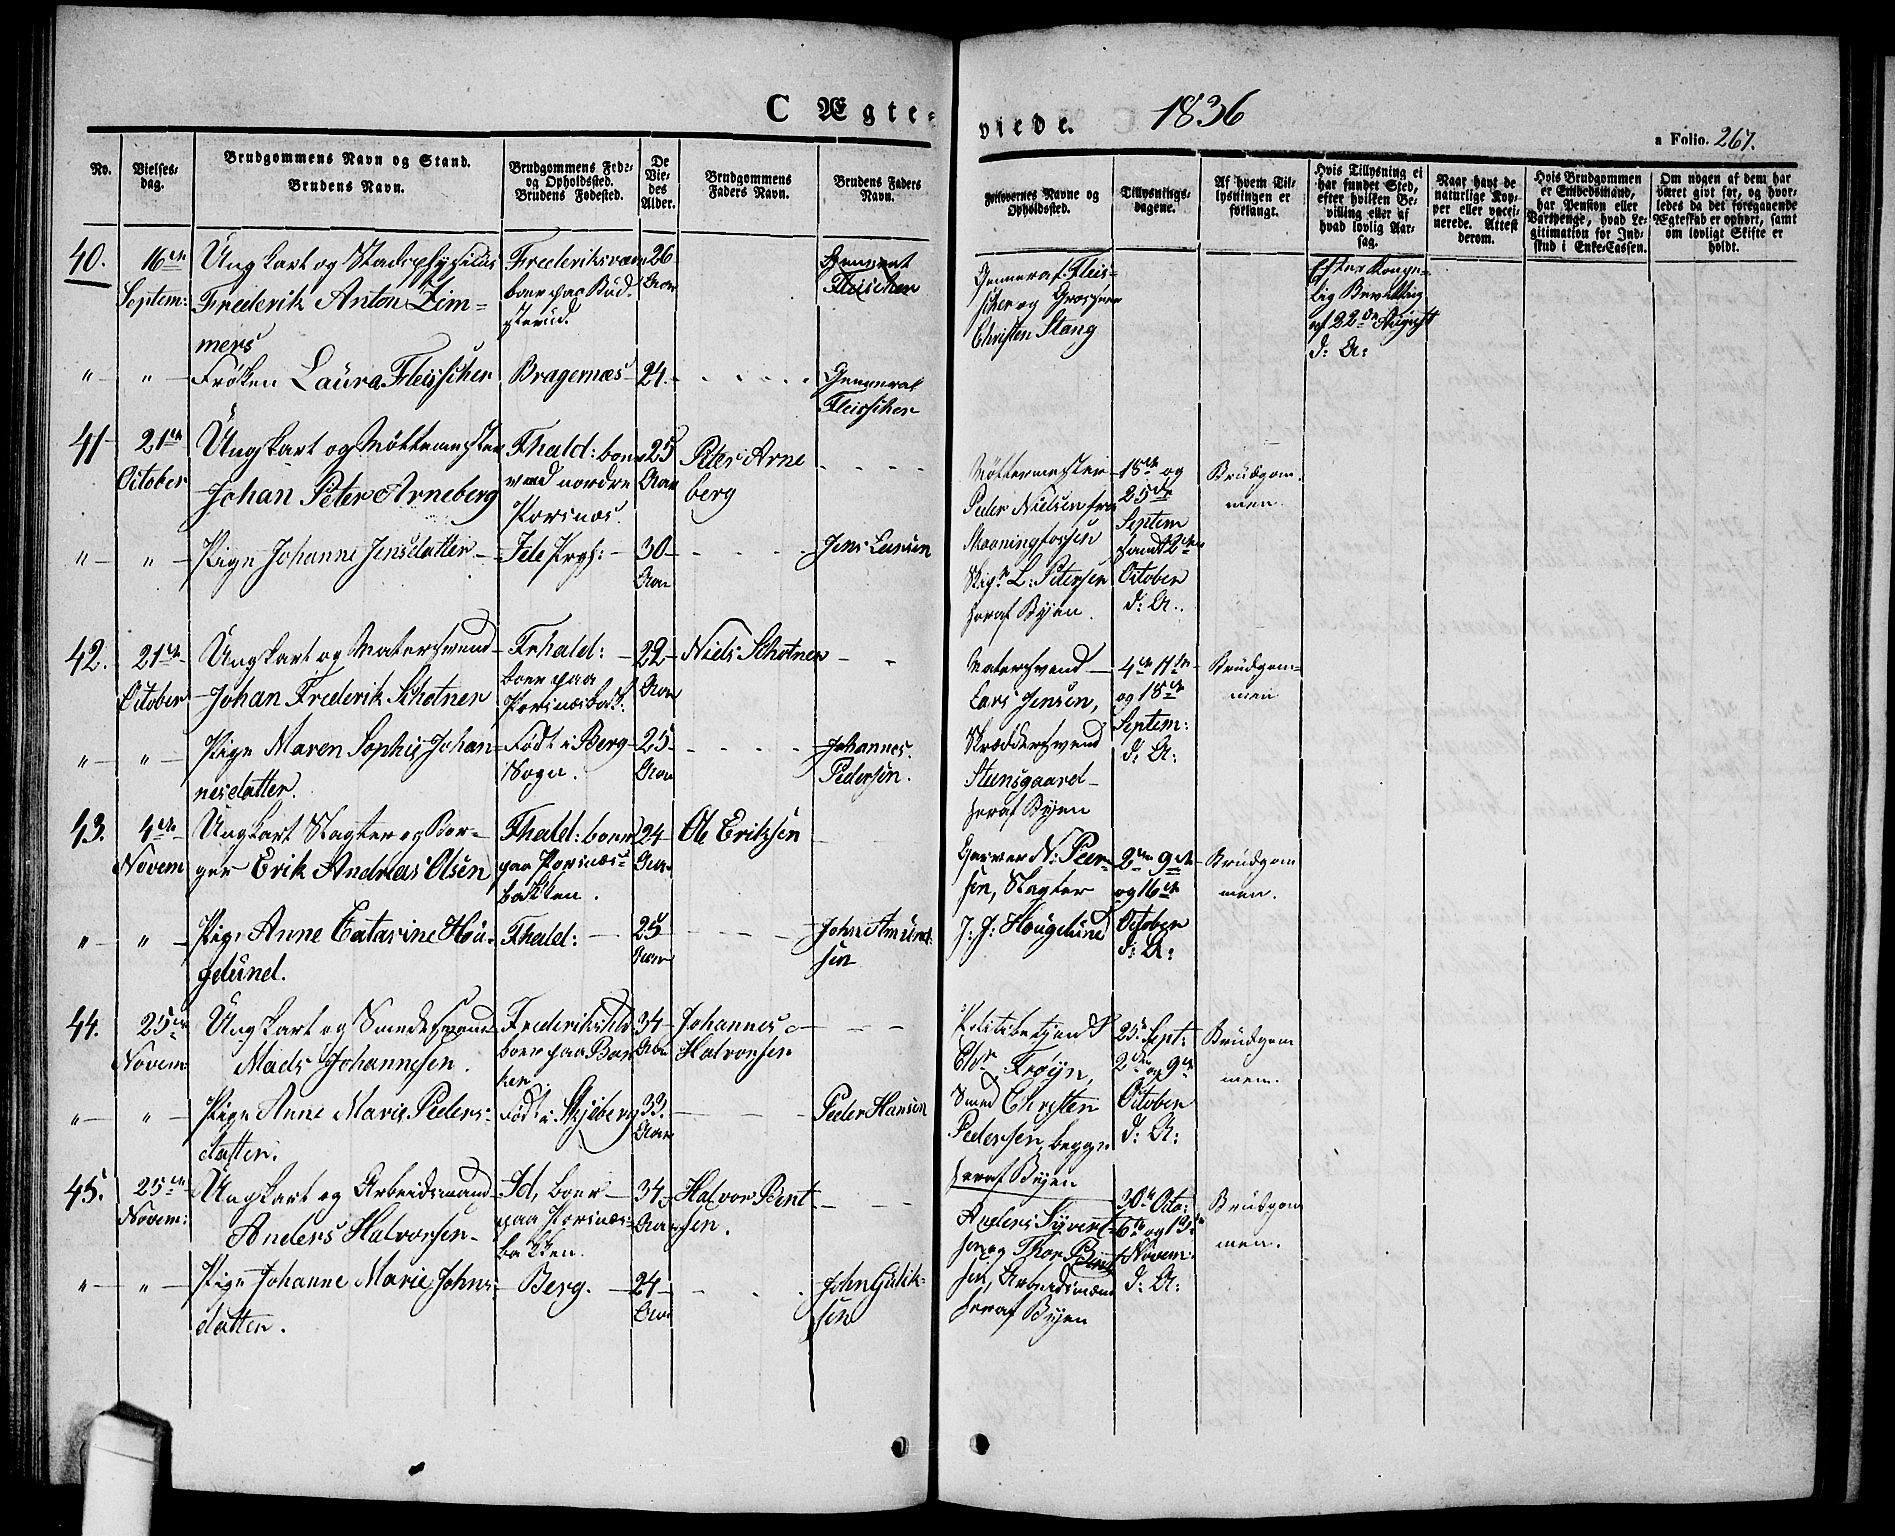 C Ægte-
viede.
1836
a Folio. 267.
No.
Vielses-
dag.
Brudgommens Navn og Stand.
Brudens Navn.
Brudgommens Føde-
og Opholdssted.
Brudens Fødested.
De
Vie-
des
Alder.
Brudgommens
Faders Navn.
Brudens Faders
Navn.
Forlovernes Navne og
Opholdssted.
Tillysnings-
dagene.
Af hvem Til-
lysningen er
forlangt.
Hvis Tillysning ei
har fundet Sted,
efter hvilken Be-
villing eller af
hvad lovlig Aar-
sag.
Naar havt de
naturlige Kop-
per eller vacci-
nerede. Attest
derom.
Hvis Brudgommen
er Embedsmand,
har Pension eller
Vartpenge, hvad Le-
gitimation for Ind-
skud i Enke-Cassen.
Om nogen af dem har
været gift før, og hvor-
ledes da det foregaaende
Ægteskab er ophørt, samt
om lovligt Skifte er
holdt.
40.
16de
Septem:
Ungkarl og Stadsphysicus
Frederik Anton Zim-
mers
26
Aar
General
Fleischer
General Fleis-
scher og Grosserer
Christen Stang
Efter Konge-
lig Bevilling
af 22de August
d: A:
Frøken Laura Fleisscher
Bragernæs
21
General
Fleisscher
41
21de
October
Ungkarl og Møllemester
Johan Peter Arneberg
Fhald: boer
ved nordre
Porsnæs.
25
Aar
Peter Arne
berg
Møllermester
Peder Nielsen fra
L: Petersen
heraf Byen.
18de og
25de
Septem
samt 2den
October
d: A:
Brudgom-
men.
Pige Johanne Jensdatter
Ide Prgj:
30
Aar
Jens Larsen
42.
21de
October
Ungkarl og Malersvend
Johan Frederik Schotner
Frhald:
boer paa
Porsnæsbak:
22
Aar
Niels Schotner
Malersvend
Lars Jensen,
Skræddersvend
Steensgaard
heraf Byen
4de 11te
og 18de
Septem:
d: A:
Brudgom-
men
Pige Maren Sophie Johan-
nesdatter.
Født i Berg
Sogn.
25
Aar
Johannes
Pedersen.
43.
4de
Novem
Ungkarl Slagter og Bor-
ger Erik Andreas Olsen
Fhald: boer
paa Porsnæs-
bakken.
24
Aar
Ole Eriksen
Garver N: Peer-
sen, Slagter
J. J: Hougelund
2den 9de
og 16de
October
d: A:
Brudgom
men.
Pige Anne Catarine Hou-
gelund.
Fhald:
25
Aar
John Amund-
sen
44.
25de
Novem:
Ungkarl og Smedesvend
Mads Johannesen.
Frederikshld
boer paa Bak
ken.
34
Aar
Johannes
Halvorsen
Politibetjent
Frøyn,
Smed Christen
Pedersen, begge
heraf Byen
25de Sept:
2den og 9de
October
d: A:
Brudgom
men.
Pige Anne Marie Peders-
datter.
Født i Skjeberg
33.
Aar
Peder Hansen
45.
25de
Novem:
Ungkarl og Arbeidsmand
Anders Halvorsen
Id, boer
paa Porsnæs-
bakken.
34
Aar
Halvor Bent
sen.
Anders Syvert-
sen og Thor Bent
sen, Arbeidsmænd
heraf Byen
30te Octo:
6te og 13de
Novem:
d: A:
Brudgom
men.
Pige Johanne Marie Johns-
datter.
Berg.
24
Aar
John Gulik-
sen